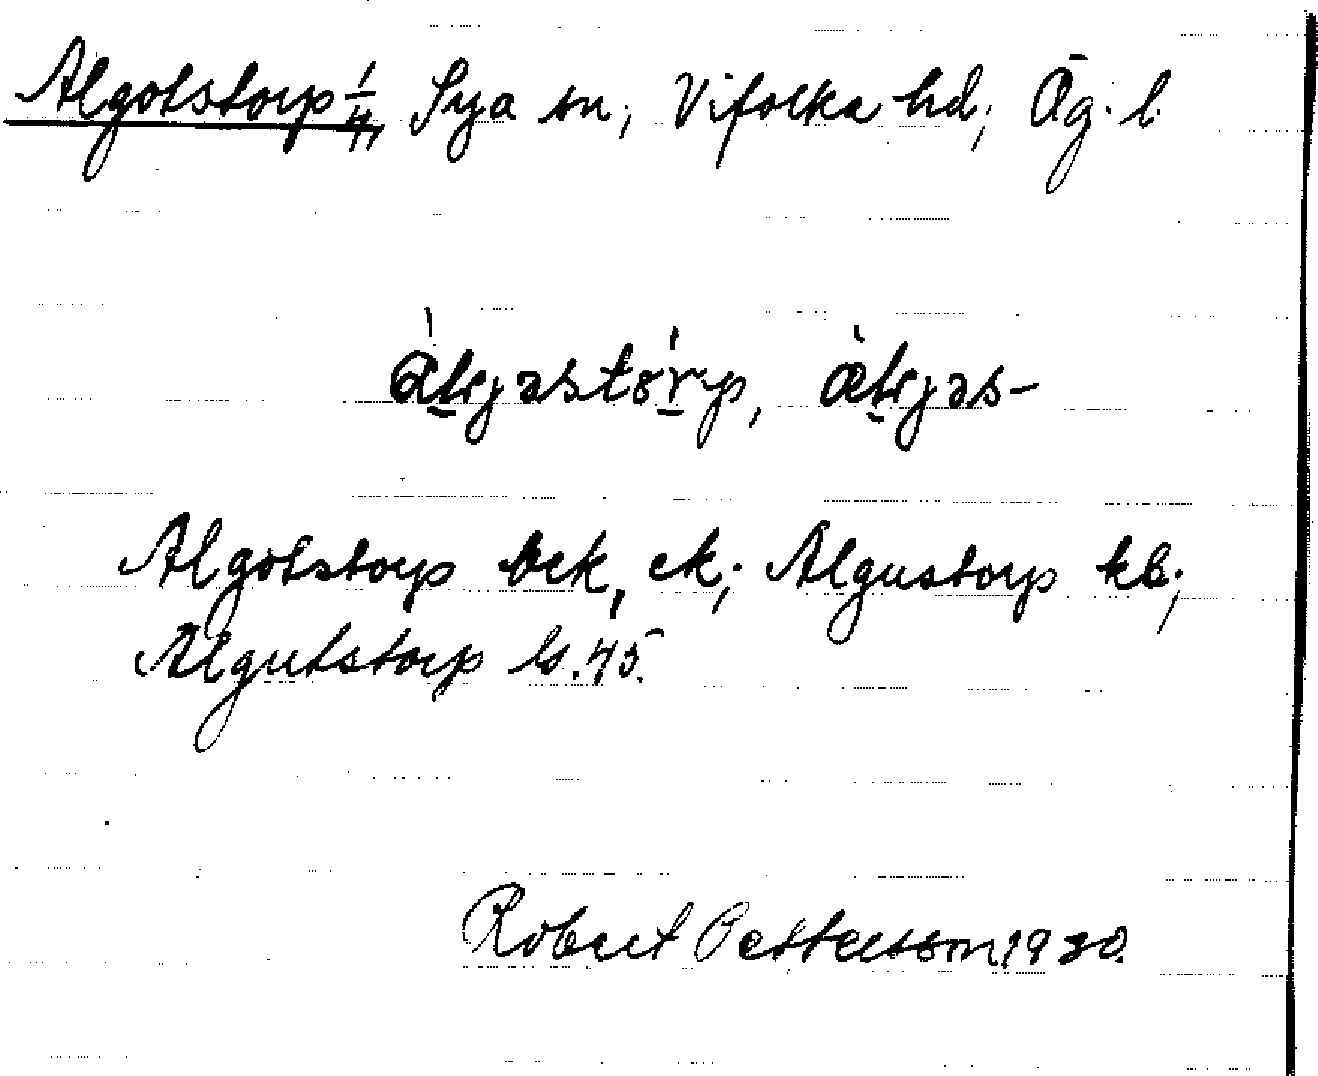 Algotstorp 1/4, Sya sn, Vifolka hd, Ög. l.
Algotstorp bek, ek; Algustorp kb;
Algutstorp ls. 45.
Robert Pettersson 1930.